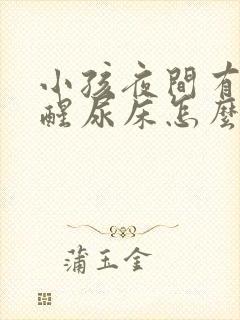 小孩夜間有
醒尿床怎麼
蒲玉金